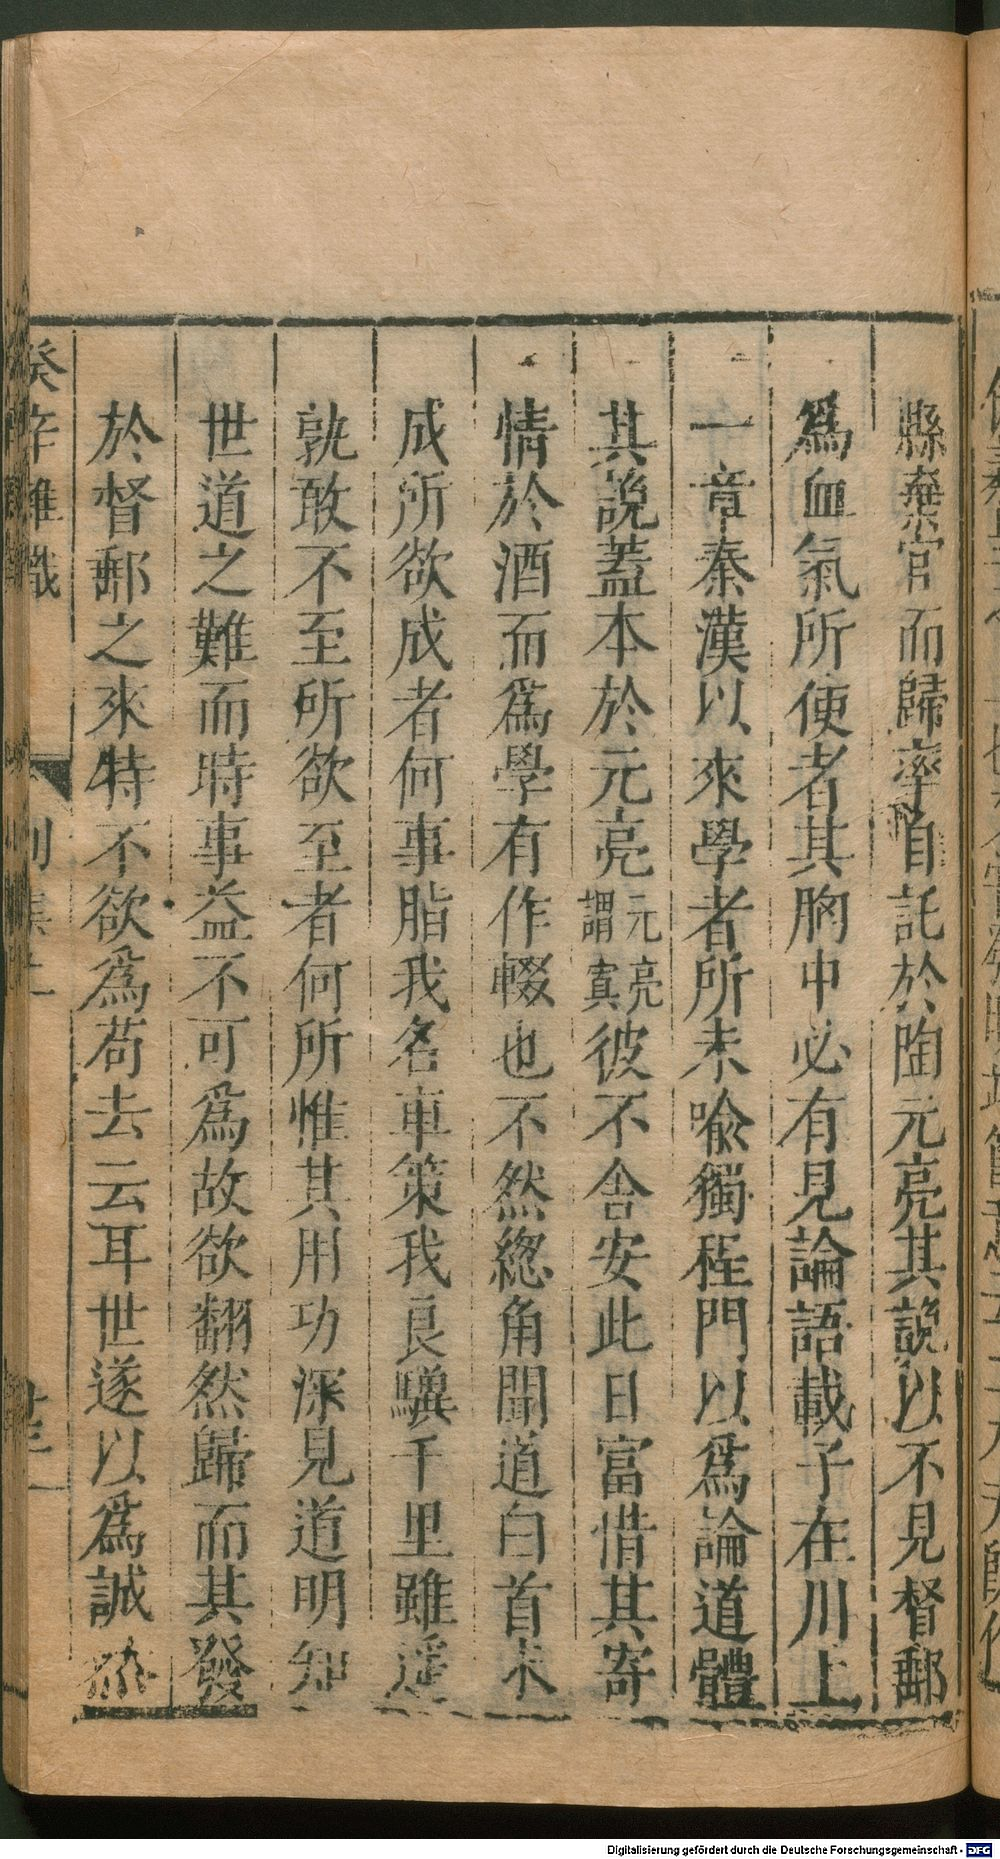 縣棄官而歸率自託於陶元亮其說以不見督郵
爲血氣所使者其胸中必有見論語載子在川上
一章秦漢以來學者所未喩獨程門以爲論道體
其說蓋本於元亮元亮謂寘彼不舎安此日富惜其寄
情於酒而爲學有作輟也不然緫角聞道白首未
成所欲成者何事脂我名車策我良驥千里雖遥
孰敢不至所欲至者何所惟其用功深見道明知
世道之難而時事益不可爲故欲翻然歸而其發
於督郵之來特不欲爲苟去云耳世遂以爲誠
癸辛雜識
別集上
Digitalisierung gefördert durch die Deutsche Forschungsgemeinschaft - DFG